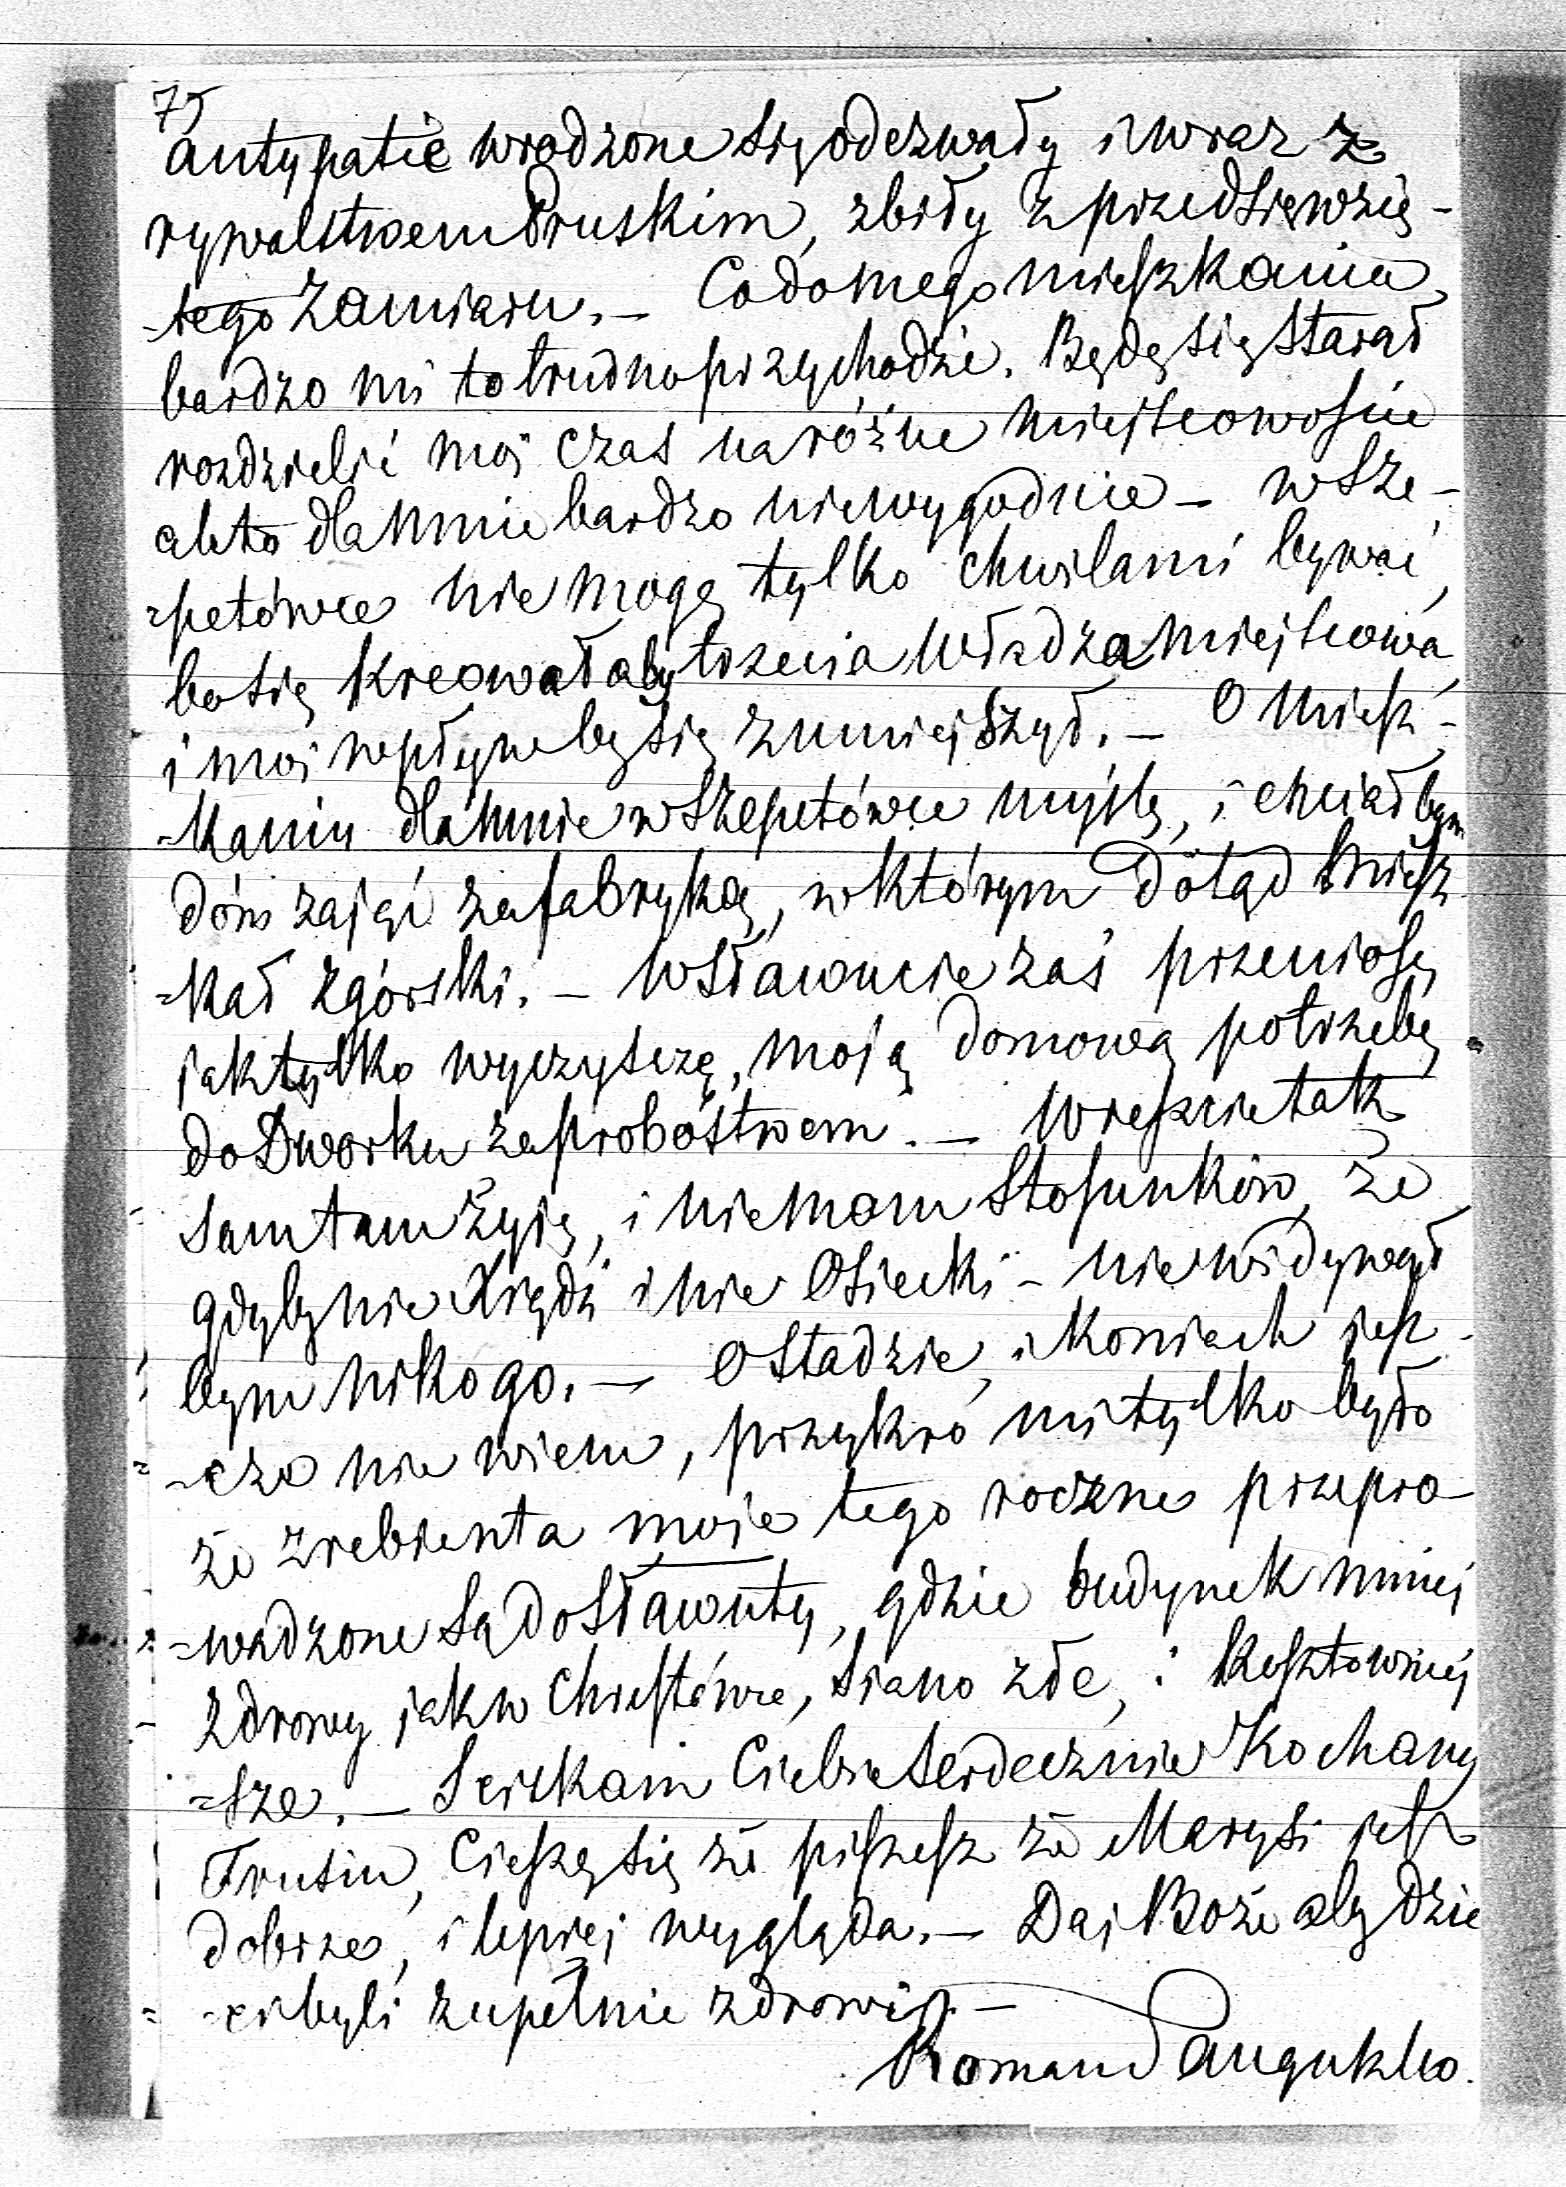 75
antypatie wrodzone się odezwały i wraz z
rywalstwem Pruskim, zbiły z przedsięwzię-
-tego zamiaru. — Co do mego mieszkania,
bardzo mi to trudno przychodzi. Będę się starał
rozdzielić mój czas na różne miejscowoście
ale to dla mnie bardzo niewygodnie — w Sze-
=petówce nie mogę tylko chwilami bywać,
bo się kreowałaby trzecia władza miejscowa,
i mój wpływ by się zmniejszył. — O miesz-
-kaniu dla mnie w Szepetówce myślę, i chciałbym
dóm zająć za fabryką, w którym dotąd miesz
=kał Zgórski. — W Sławucie zaś przeniosę
jak tylko wyczyszczę, moją domową potrzebę
do Dworku za probostwem. — Wreszcie tak
sam tam żyję, i nie mam stosunków, że
gdyby nie Xiądz i nie Osiecki — nie widywał
bym nikogo. — O Stadzie, i koniach jesz-
-cze nie wiem, przykro mi tylko było
że zrebienta moje tego roczne przepro-
=wadzone są do Sławuty, gdzie budynek mniej
zdrowy jak w Chrestówce, siano złe, i kosztowniej
=sze. — Sciskam Ciebie serdecznie Kochany
Trusiu, Cieszę się że piszesz że Marysi jest
dobrze, i lepiej wygląda. — Daj Boże aby dzie
-ci byli zupełnie zdrowi. —
Roman Sanguszko.